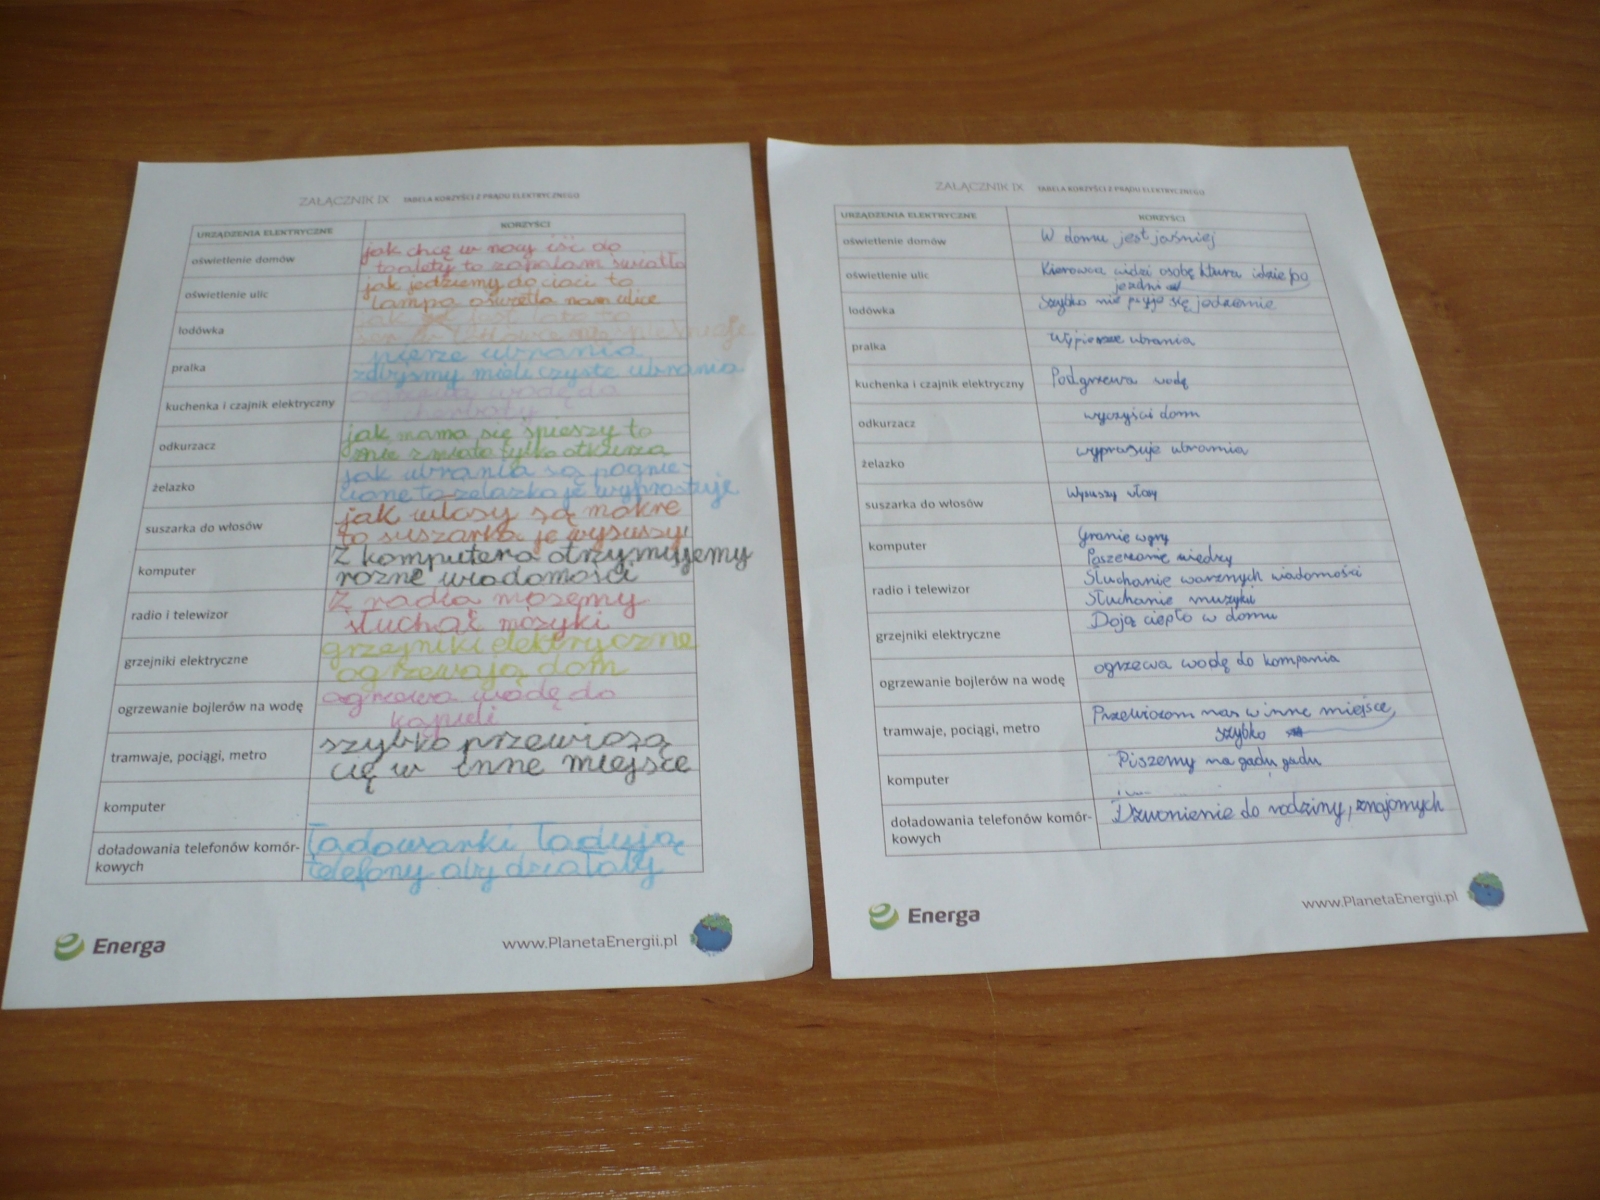 ZAŁĄCZNIK IX TABELA KORZYŚCI Z PRĄDU ELEKTRYCZNEGO
URZĄDZENIA ELEKTRYCZNE KORZYŚCI
oświetlenie domów jak chcę w nocy iść do
toalety to zapalam swiatło
oświetlenie ulic jak jedziemy do cioci to
lampa oświetla nam ulice
lodówka jak jest lato to
pralka pierze ubrania
zdbyśmy mieli czyste ubrania
kuchenka i czajnik elektryczny wodę do
herbaty
odkurzacz jak mama się śpieszy to
nie zmiata tylko otkurza
żelazko jak ubrania są pognie-
cione to zelazko je wyprostuje
suszarka do włosów jak wlosy są mokre
to suszarka je wysuszy
komputer Z komputera otrzymujemy
rozne wiadomości
radio i telewizor Z radia mozemy
słuchać mózyki
grzejniki elektryczne grzejniki elektryczne
ogrzewają dom
ogrzewanie bojlerów na wodę ogrzewa wodę do
kąpieli
tramwaje, pociągi, metro szybko przewiozą
cię w inne miejsce
komputer
doładowania telefonów komór-
kowych ładowarki ładują
telefony aby działały
Energa www.PlanetaEnergii.pl
ZAŁĄCZNIK IX TABELA KORZYŚCI Z PRĄDU ELEKTRYCZNEGO
URZĄDZENIA ELEKTRYCZNE KORZYŚCI
oświetlenie domów W domu jest jaśniej
oświetlenie ulic Kierowca widzi osobę ktura idzie po
jezdni
lodówka Szybko nie psyje się jedzenie
pralka Wypierze ubrania
kuchenka i czajnik elektryczny Podgrzewa wodę
odkurzacz wyczyści dom
żelazko wyprasuje ubrania
suszarka do włosów Wysuszy włosy
komputer Granie w gry
Poszerzanie wiedzy
radio i telewizor Słuchanie warznych wiadomości
Słuchanie muzyki
grzejniki elektryczne Dają ciepło w domu
ogrzewanie bojlerów na wodę ogrzewa wodę do kompania
tramwaje, pociągi, metro Przewiozom nas w inne miejsce,
szybko
komputer Piszemy na gadu gadu
doładowania telefonów komór-
kowych Dzwonienie do rodziny, znajomych
Energa www.PlanetaEnergii.pl